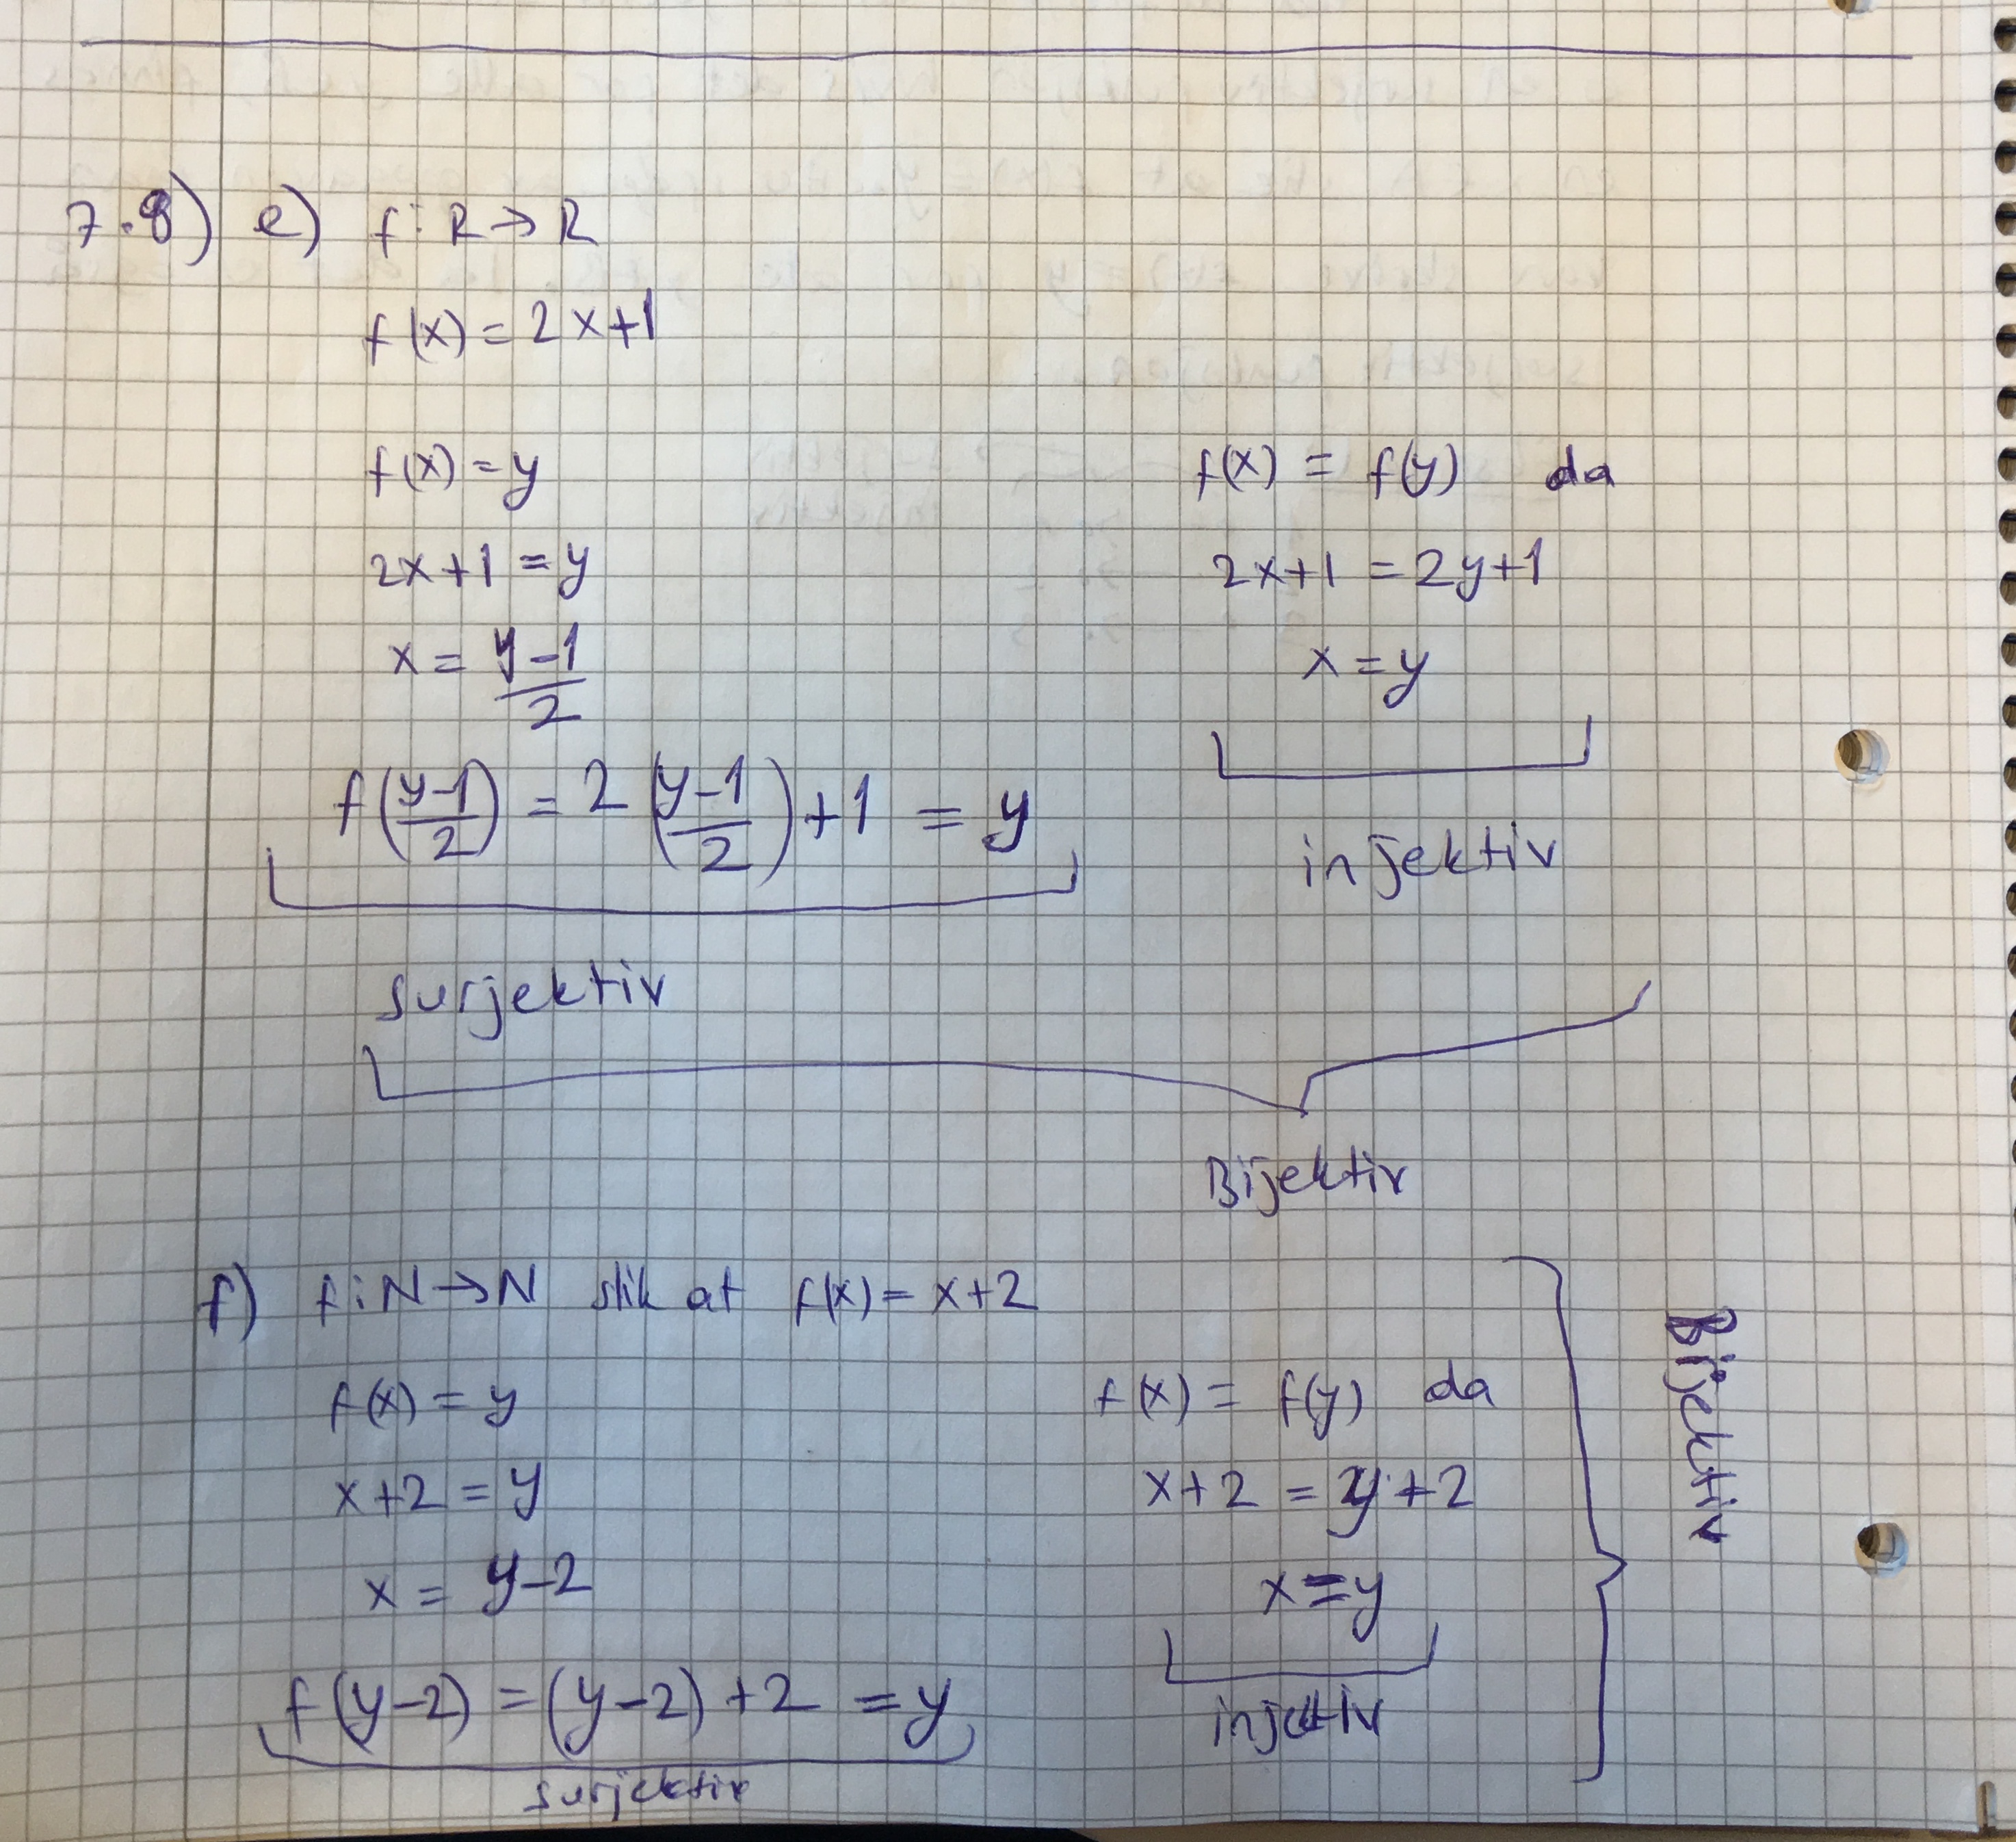 7.8) e) f: R → R
f(x) = 2x+1
f(x) = y
2x+1 = y
x = (y-1)/2
f((y-1)/2) = 2((y-1)/2)+1 = y
surjektiv
f(x) = f(y) da
2x+1 = 2y+1
x = y
injektiv
Bijektiv
f) f: N → N slik at f(x) = x+2
f(x) = y
x+2 = y
x = y-2
f(y-2) = (y-2)+2 = y
surjektiv
f(x) = f(y) da
x+2 = y+2
x = y
injektiv
Bijektiv